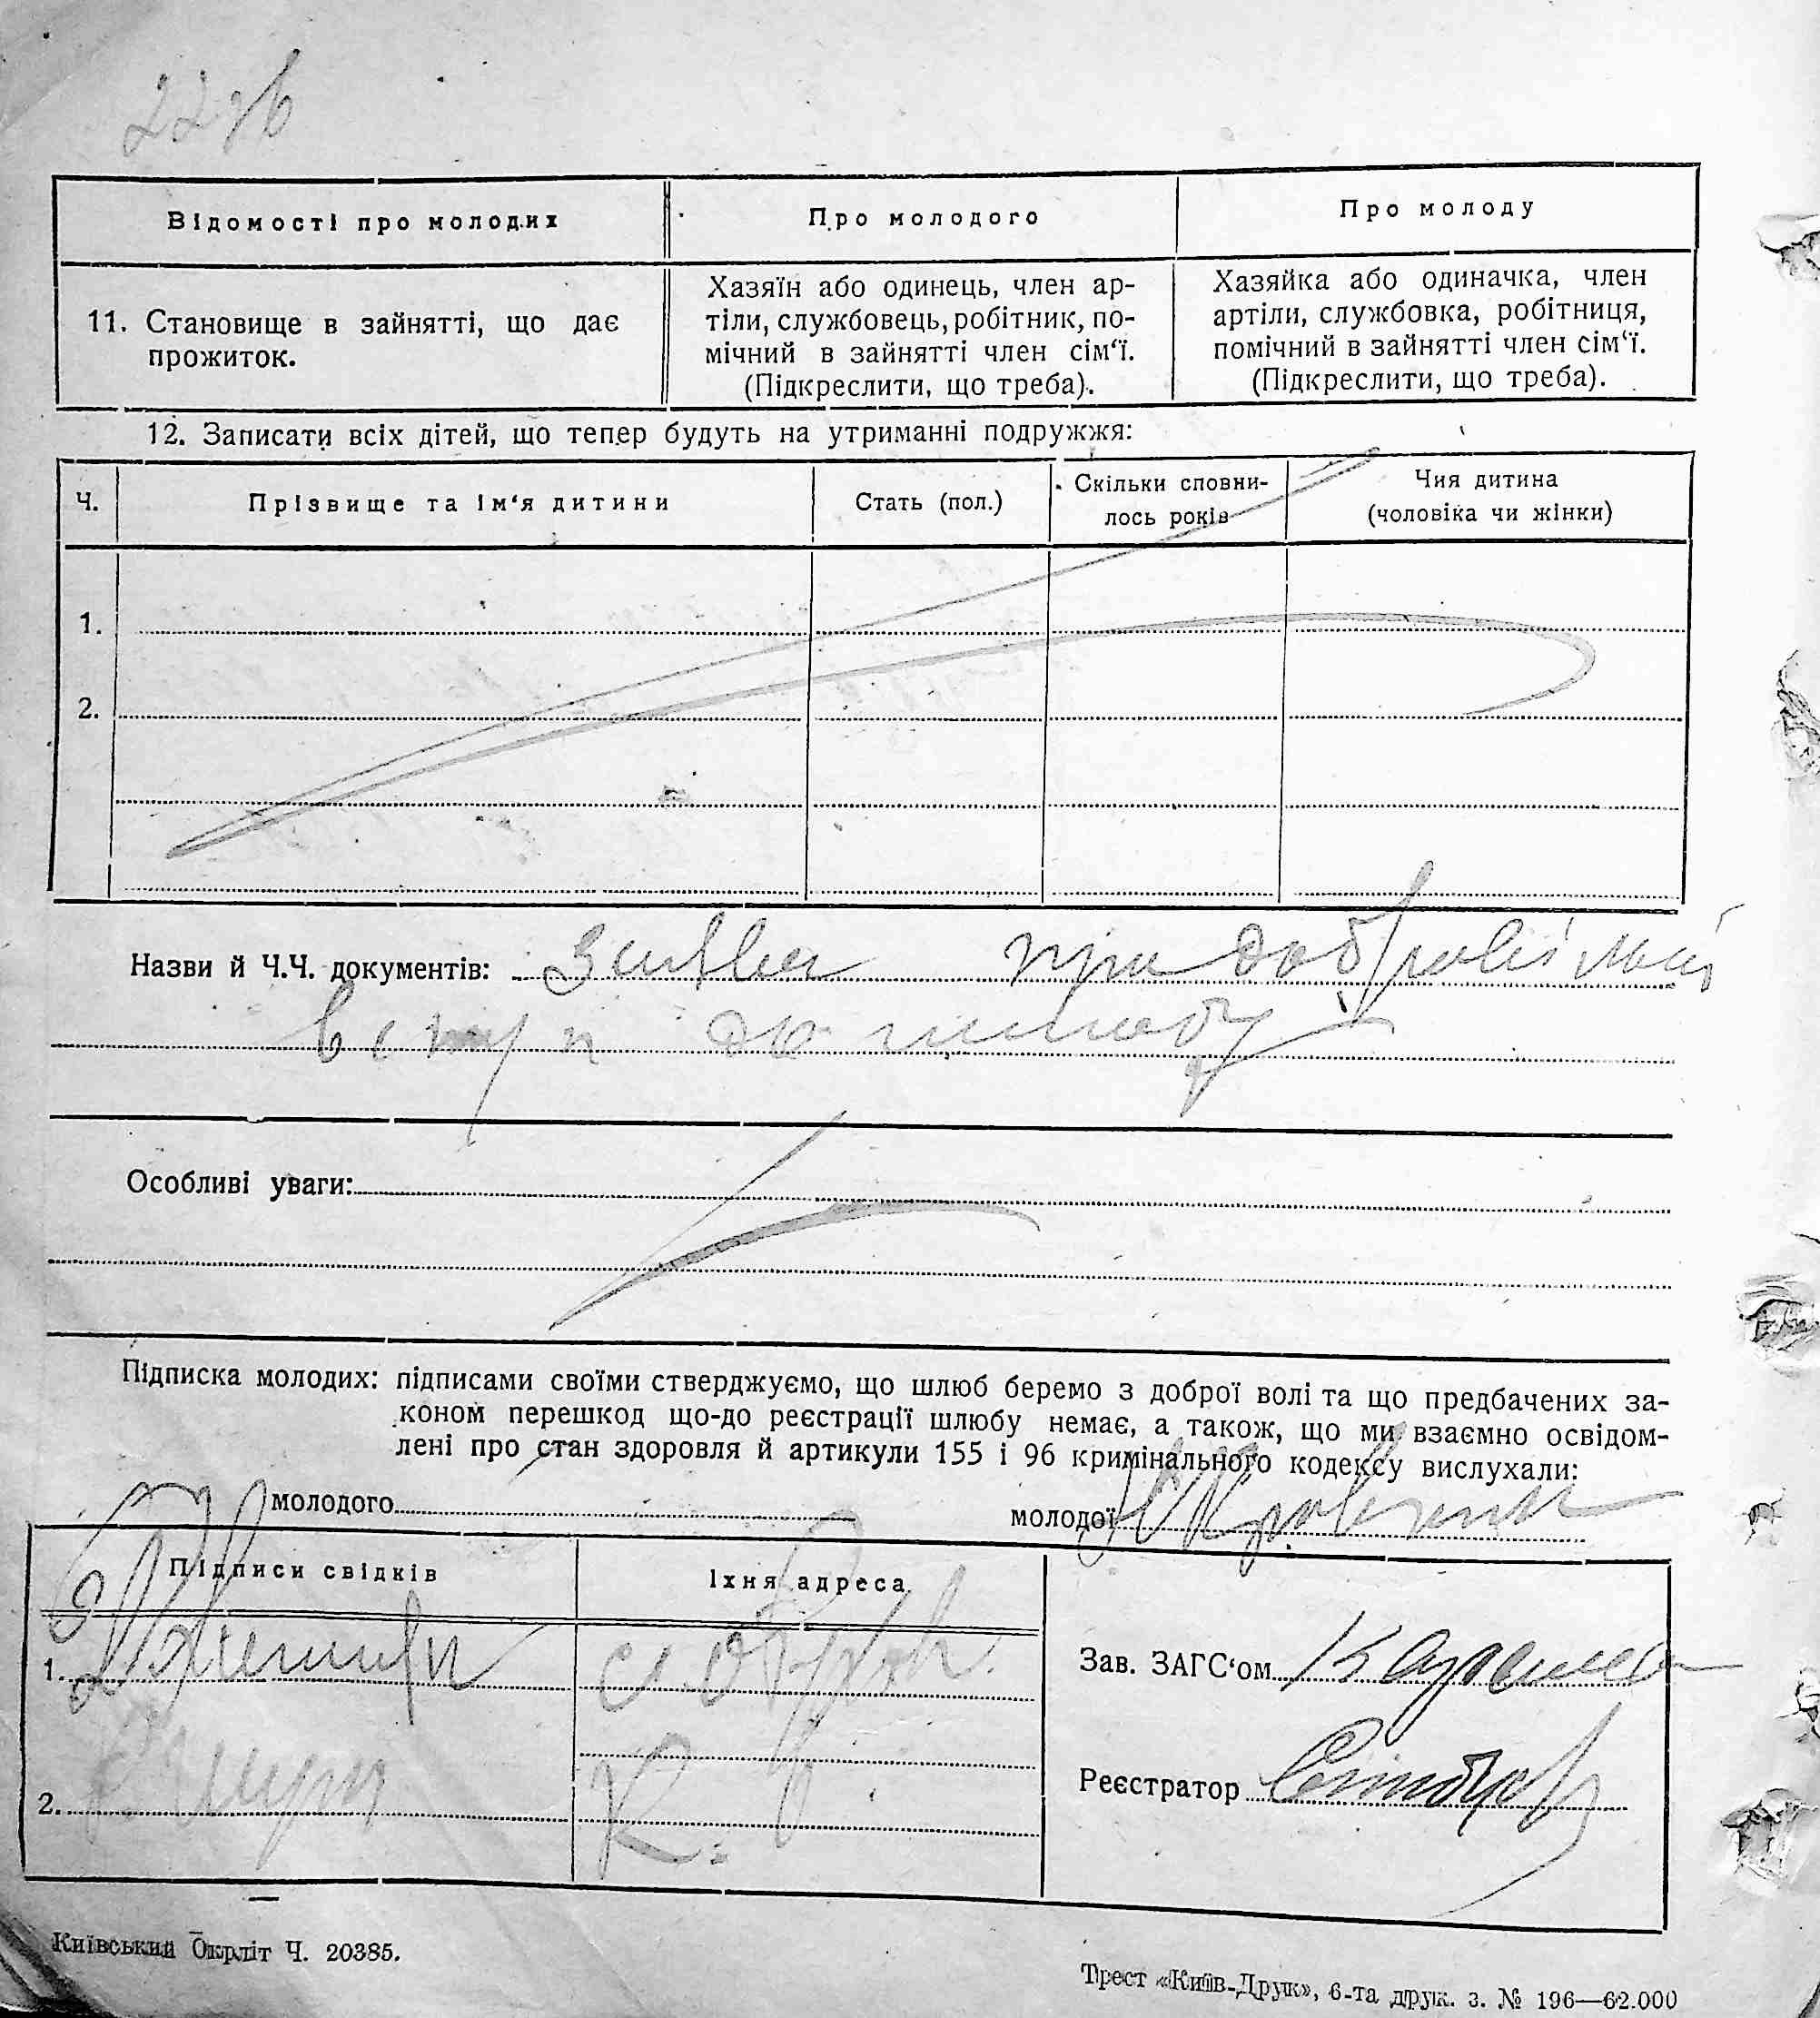 Відомості про молодих
Про молодого
Про молоду
11. Становище в зайнятті, що дає
прожиток.
Хазяїн або одинець, член ар-
тіли, службовець, робітник, по-
мічний в зайнятті член сім‘ї.
(Підкреслити, що треба).
Хазяйка або одиначка, член
артіли, службовка, робітниця,
помічний в зайнятті член сім‘ї.
(Підкреслити, що треба).
12. Записати всіх дітей, що тепер будуть на утриманні подружжя:
Ч.
Прізвище та ім‘я дитини
Стать (пол.)
Скільки сповни-
лось років
Чия дитина
(чоловіка чи жінки)
1.
2.
Назви й Ч.Ч. документів: Заява про добровільний
вступ до шлюбу
Особливі уваги:
Підписка молодих: підписами своїми стверджуємо, що шлюб беремо з доброї волі та що предбачених за-
коном перешкод що-до реєстрації шлюбу немає, а також, що ми взаємно освідом-
лені про стан здоровля й артикули 155 і 96 кримінального кодексу вислухали:
молодого
молодої
Підписи свідків
Їхня адреса
1.
2.
Зав. ЗАГС‘ом
Реєстратор
Київський Окрліт Ч. 20385.
Трест «Київ-Друк», 6-та друк. з. № 196—62.000